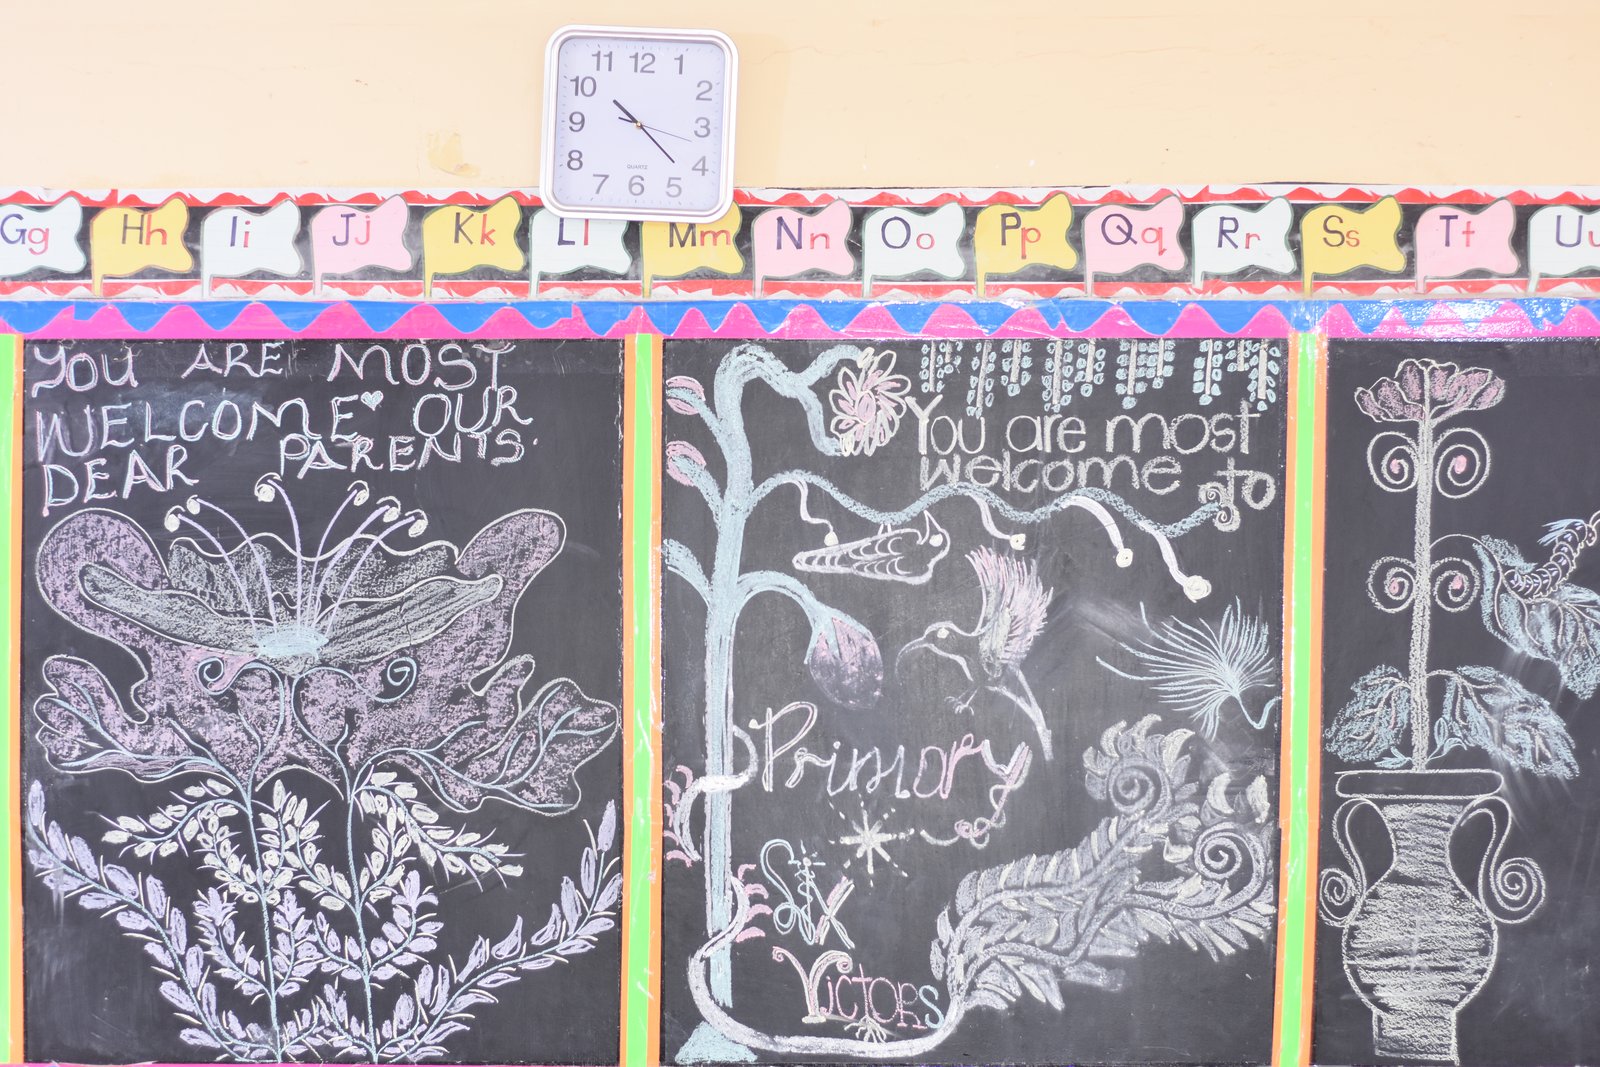 11 12 1
10 2
9 3
8 4
QUARTZ
7 6 5
Gg Hh Ii Jj Kk Ll Mm Nn Oo Pp Qq Rr Ss Tt Uu
YOU ARE MOST
WELCOME OUR
DEAR PARENTS.
You are most
welcome to
Primary
Six
Victors